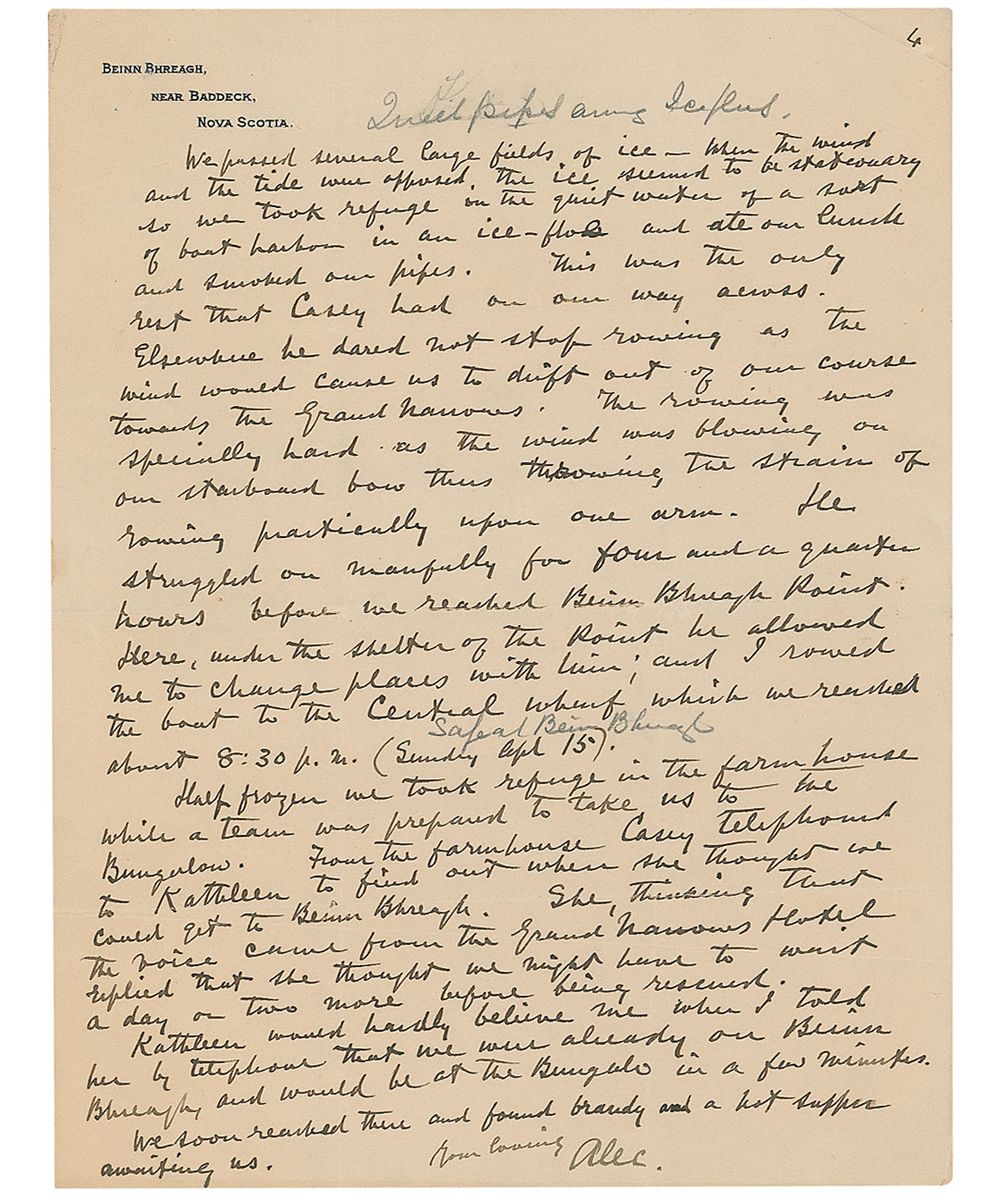 4
BEINN BHREAGH,
NEAR BADDECK,
NOVA SCOTIA.
pipes among Icefloes.
We passed several large fields of ice — When the wind
and the tide were opposed, the ice seemed to be stationary
so we took refuge in the quiet water of a sort
of boat harbor in an ice-floe and ate our lunch
and smoked our pipes. This was the only
rest that Casey had on our way across.
Elsewhere he dared not stop rowing as the
wind would cause us to drift out of our course
towards the Grand Narrows. The rowing was
specially hard as the wind was blowing on
our starboard bow thus throwing the strain of
rowing practically upon one arm. He
struggled on manfully for four and a quarter
hours before we reached Beinn Bhreagh Point.
Here, under the shelter of the Point he allowed
me to change places with him; and I rowed
the boat to the Central wharf which we reached
Safe at Beinn Bhreagh
about 8:30 p.m. (Sunday Apl 15).
Half frozen we took refuge in the farm house
while a team was prepared to take us to the
Bungalow. From the farmhouse Casey telephoned
to Kathleen to find out when she thought we
could get to Beinn Bhreagh. She, thinking that
the voice came from the Grand Narrows Hotel
replied that she thought we might have to wait
a day or two more before being rescued.
Kathleen would hardly believe me when I told
her by telephone that we were already on Beinn
Bhreagh, and would be at the Bungalo in a few minutes.
We soon reached there and found brandy and a hot supper
awaiting us.
Your loving Alec.